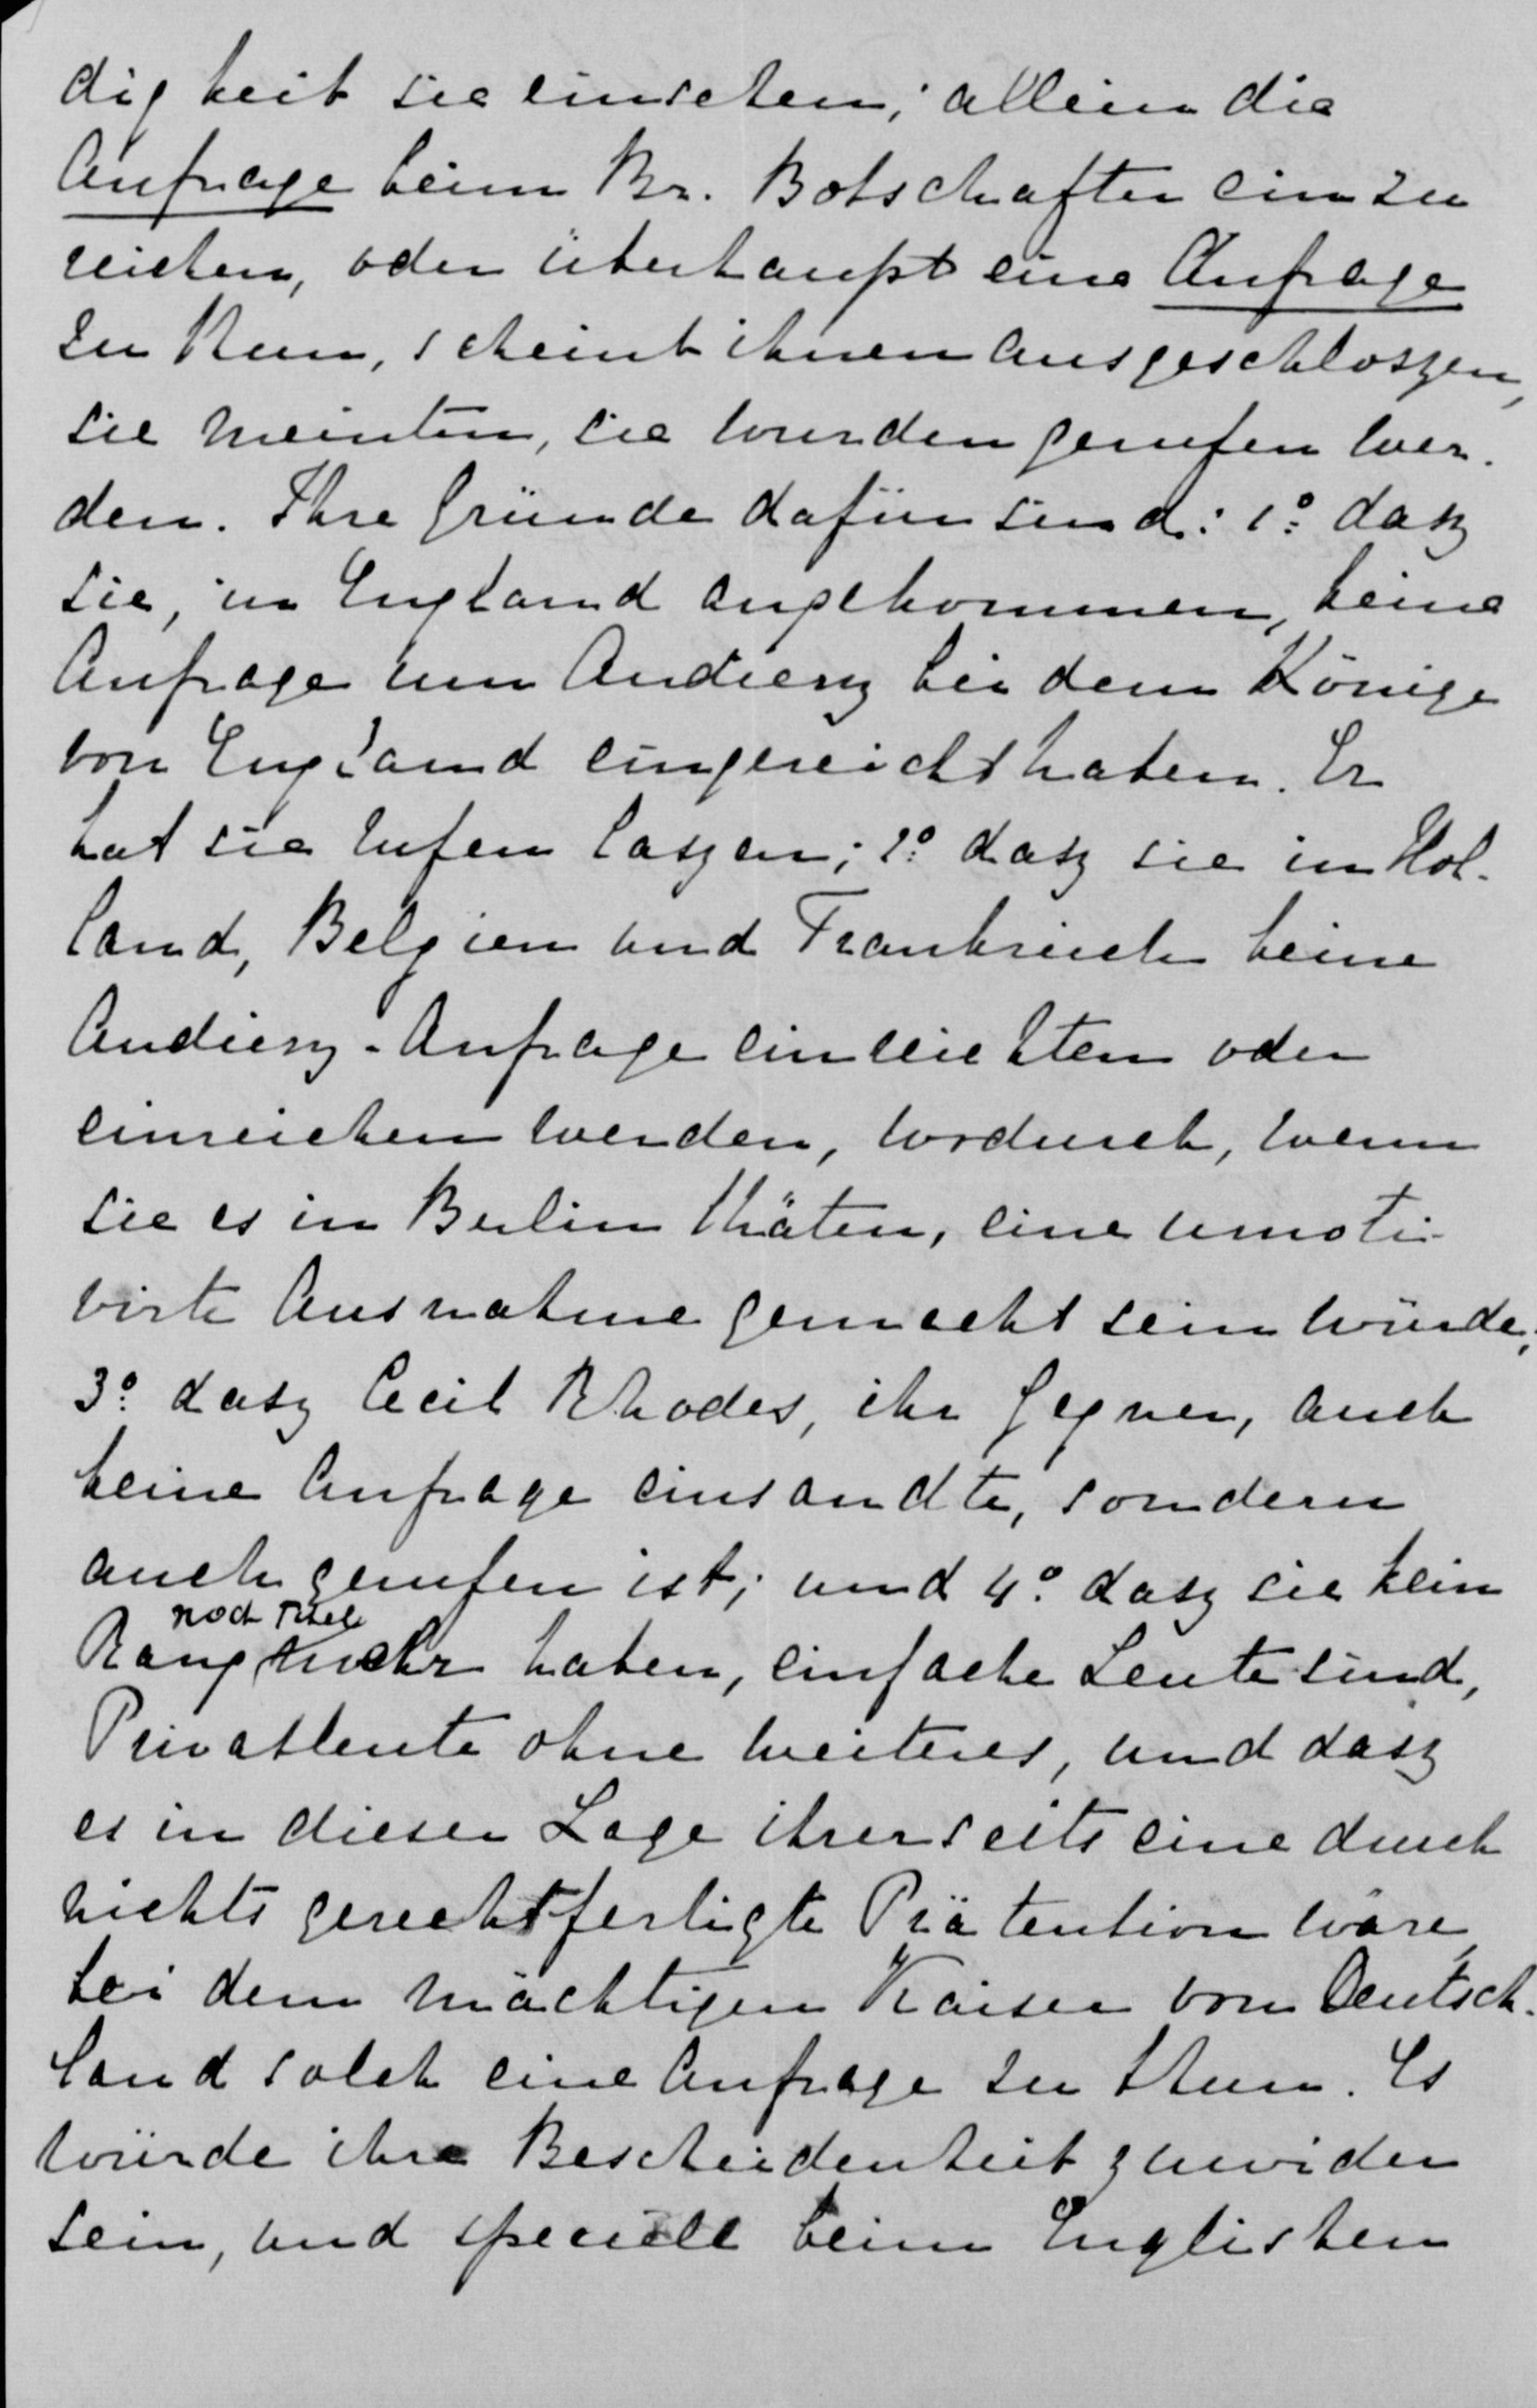 digkeit sie einsehen; allein die
Anfrage beim Br. Botschafter einzu
reichen, oder überhaupt eine Anfrage
zu thun, scheint ihnen ausgeschloszen,
sie meinten, sie wurden gerufen wer-
den. Ihre Gründe dafür sind: 1º dasz
sie, in England angekommen, keine
Anfrage um Audienz bei dem Könige
von England eingereicht haben. Er
hat sie rufen laszen; 2º dasz sie in Hol-
land, Belgien und Frankreich keine
Audienz-Anfrage einreichten oder
einreichen werden, wodurch, wenn
sie es in Berlin thäten, eine unmoti-
virte Ausnahme gemacht sein würde;
3º dasz Cecil Rhodes, ihr Gegner, auch
keine Anfrage einsandte, sondern
auch gerufen ist; und 4º dasz sie kein
noch Titel
Rang mehr haben, einfache Leute sind,
Privatleute ohne weiteres, und dasz
es in dieser Lage ihrerseits eine durch
nichts gerechtfertigte Prätention wäre,
bei dem mächtigen Kaiser von Deutsch-
land solch eine Anfrage zu thun. Es
würde ihre Bescheidenheit zuwider
sein, und speciell beim Englischen